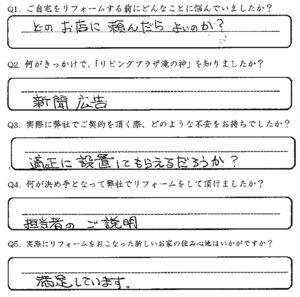 Q1. ご自宅をリフォームする前にどんなことに悩んでいましたか？
どのお店に頼んだらよいのか？
Q2. 何がきっかけで、「リビングプラザ滝の神」を知りましたか？
新聞広告
Q3. 実際に弊社でご契約を頂く際、どのような不安をお持ちでしたか？
適正に設置してもらえるだろうか？
Q4. 何が決め手となって弊社でリフォームをして頂けましたか？
担当者のご説明
Q5. 実際にリフォームをおこなった新しいお家の住み心地はいかがですか？
満足しています。